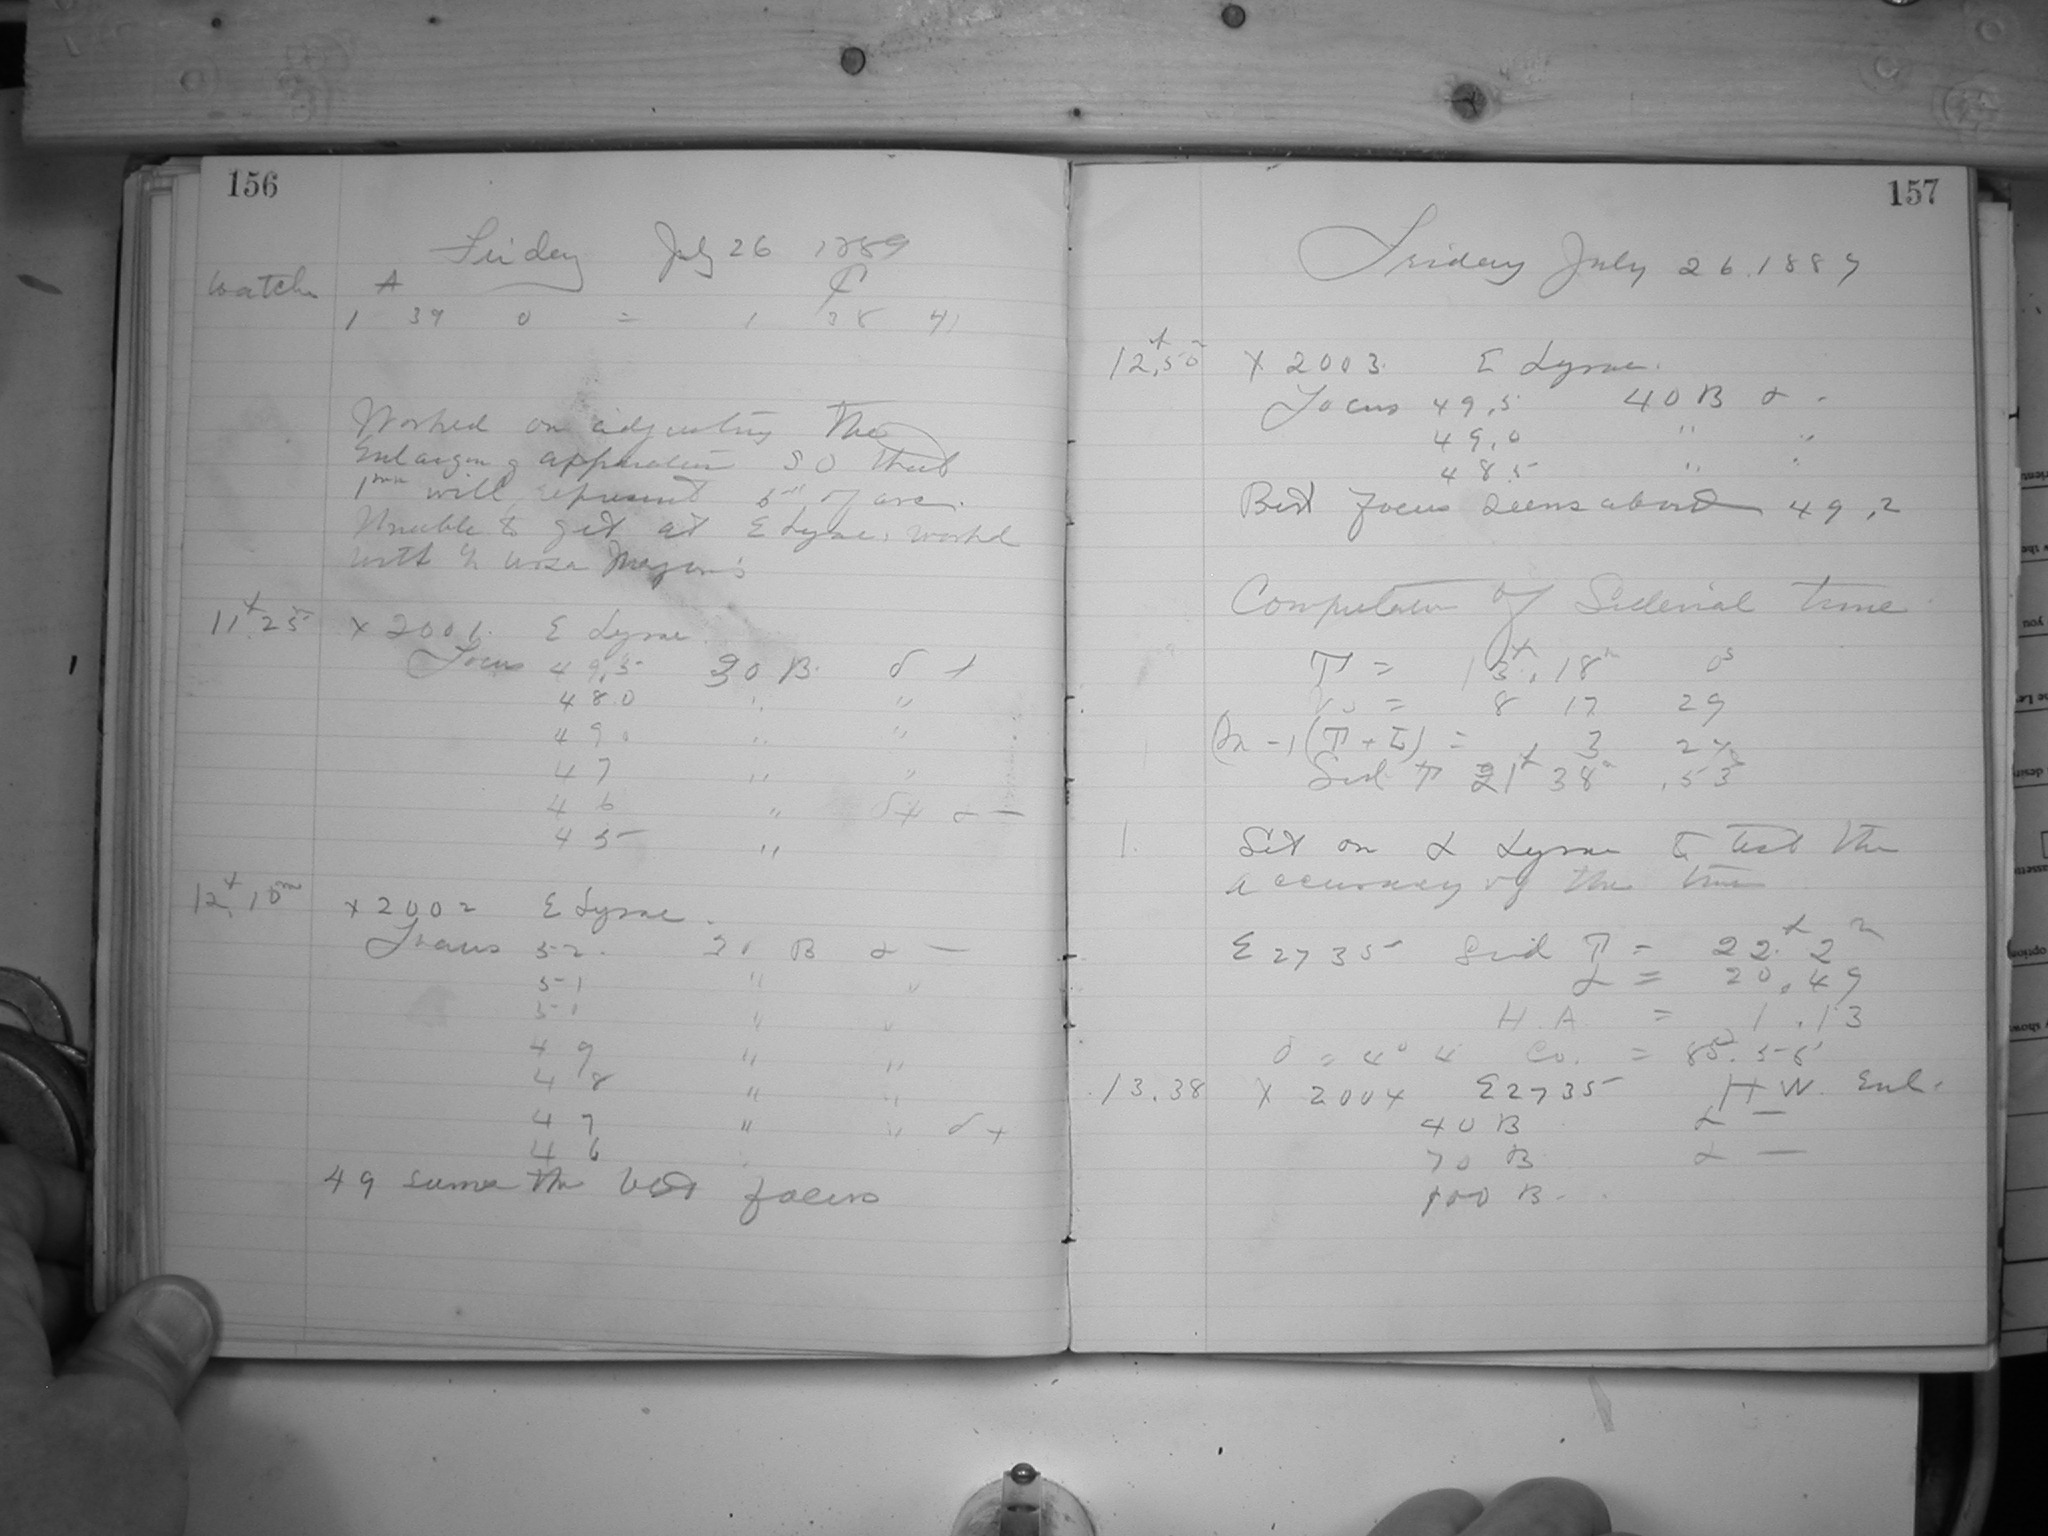 156
Friday July 26 1889
Watch A C
1 39 0 = 1 38 41
Worked on adjusting the
Enlarging apparatus so that
1mm will represent 5" of arc.
Unable to get at Ɛ Lyrae. worked
with
11h 25m × 2001. Ɛ Lyrae.
Focus 49.5 30 B. δ +
48.0 " "
49. " "
47 " "
46 " δ + α —
45 "
12h, 10m × 2002 Ɛ Lyrae.
Focus 52. 30 B α —
51 " "
50 " "
49 " "
48 " "
47 " " δ +
46
49 seems the best focus
157
Friday July 26. 1889
12h, 50 × 2003. Ɛ Lyrae.
Focus 49.5 40 B α -
49.0 " "
48.5 " "
Best focus seems about 49.2
Computation of Sidereal time
T = 13h, 18m 0s
= 8 17 29
= 3 24
Sid T 21h 38m .53s
1. Set on α Lyrae to test the
accuracy of the time
Σ 2735 Sid T = 22h 2m
α = 20.49
H. A = 1.13
δ = 4° 4 Co. = 85°. 56'
13.38 × 2004 Σ 2735 H W. Enl.
40 B α —
70 B α —
100 B.